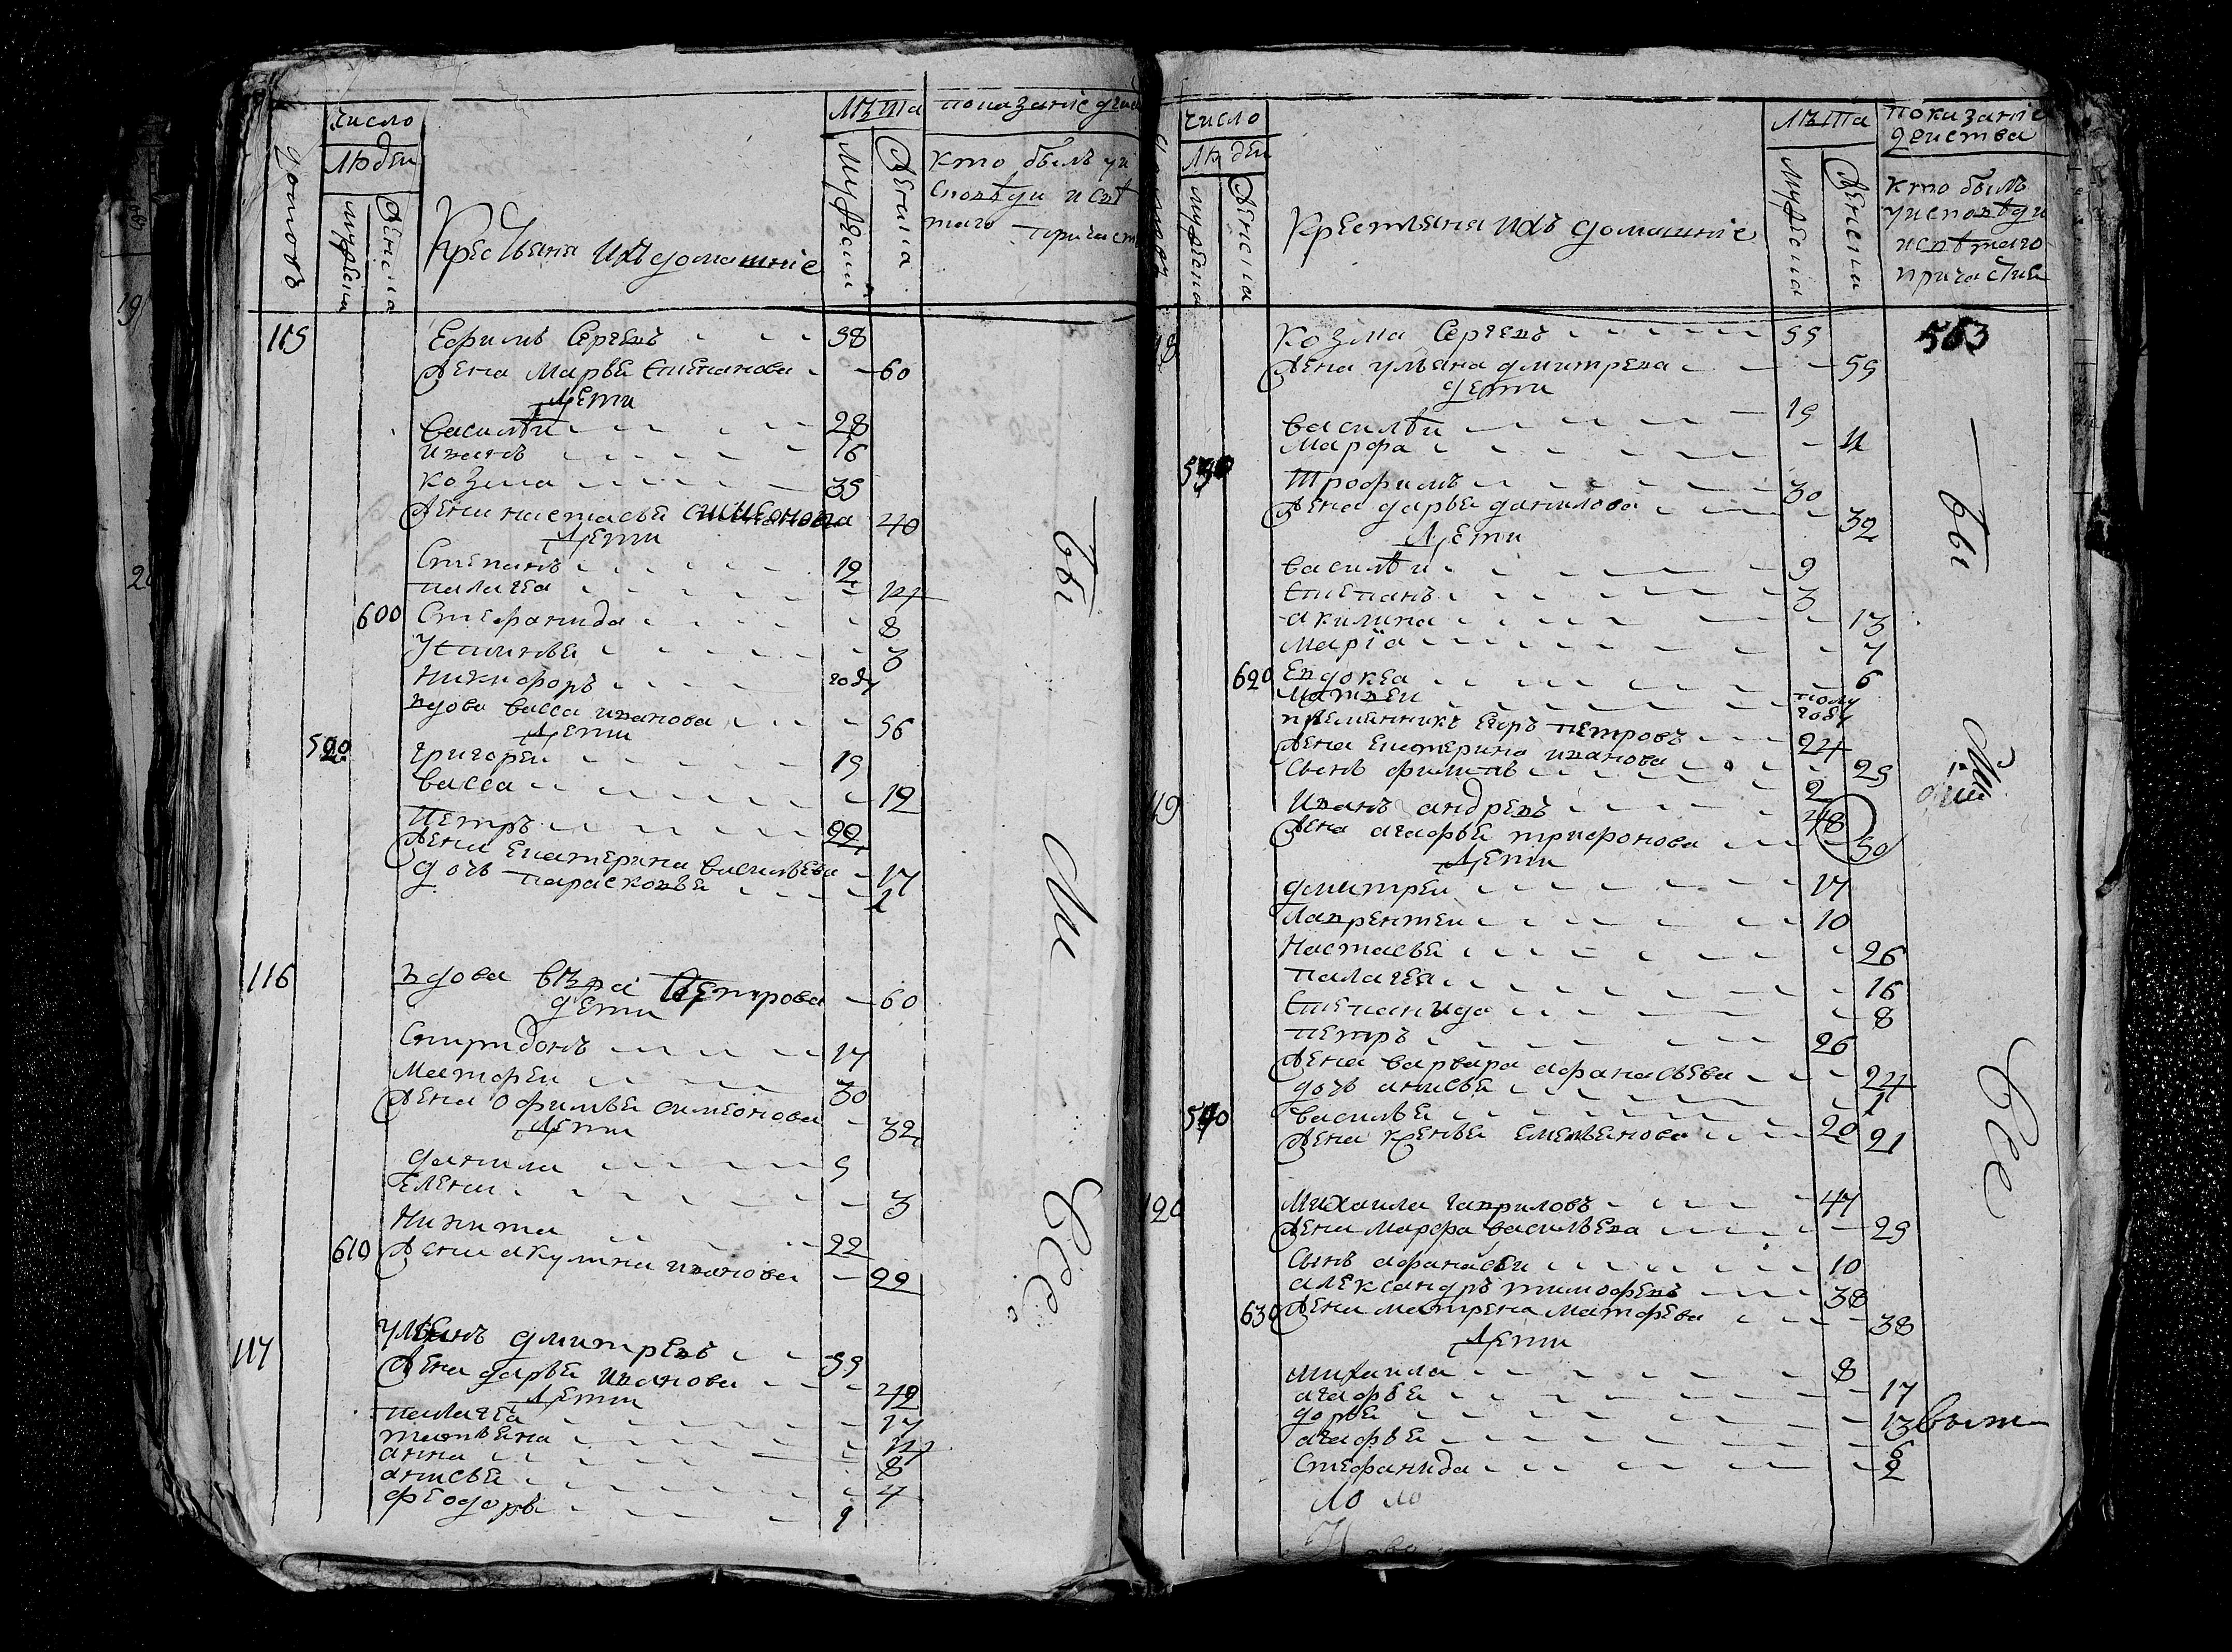 число
людеи
домовъ
мужеска
женска
Крестьяня ихъ домашние
Лѣта
Мужески
Женска
показание
кто былъ у и
споведи и свѣ
таго причаст
115 Ефимъ Сергевъ 58
Жена Марья Степанова 60
Дети
Василѣи 28
Иванъ 16
Козма 35
Жена настасья симионова 40
Дети
Степанъ 12
палагея 14
600 Стефанида 8
Устинья 3
Никифоръ году
вдова васса иванова 56
Дети
590 григореи 19
васса 12
Петръ 22
Жена Екатерина васильева 17
дочь парасковья 1
116 вдова вѣра Петрова 60
дети
Спиридонъ 17
Матфеи 30
Жена офимья симеонова 32
Дети
данила 5
Елена 3
Никита 22
610 Жена акулина иванова 22
117 ульянъ дмитревъ 59
Жена дарья иванова 42
Дети
палагея 17
татьяна 14
анна 8
анисья 4
феодоръ 9
бы
ли
Все
число
людеи
мужеска
женска
Крестьяня ихъ домашние
Лѣта
Мужески
Женски
показание
деиства
кто былъ
уисповѣди
исвѣтаго
причастия
18 Козма Сергевъ 55 563
Жена ульяна дмитрева 55
дети
василѣи 15
Марфа 11
530 Трофимъ 30
Жена дарья данилова 32
Дети
василѣи 9
Степанъ 3
акилина 13
Марiа 7
620 Евдокея 6
Матвеи полу
году
племянникъ Егоръ петровъ 24
Жена Екатерина иванова 25
Сынъ филипъ 2
19 Иванъ андревъ 48
Жена агафья трифонова 50
Дети
дмитреи 17
Лаврентеи 10
Настасья 26
палагея 16
Степанида 8
петръ 26
Жена варвара афанасьева 24
дочь анисья 1
540 василѣи 20
Жена ксенья емельянова 21
120 Михаила гавриловъ 47
Жена Марфа васильева 25
Сынъ афанасеи 10
александръ тимофевъ 38
630 Жена матрена матфева 38
Дети
михаила 8
агафья 17
дарья 13
агафья 6
Стефанида 2
бы
ли
Все